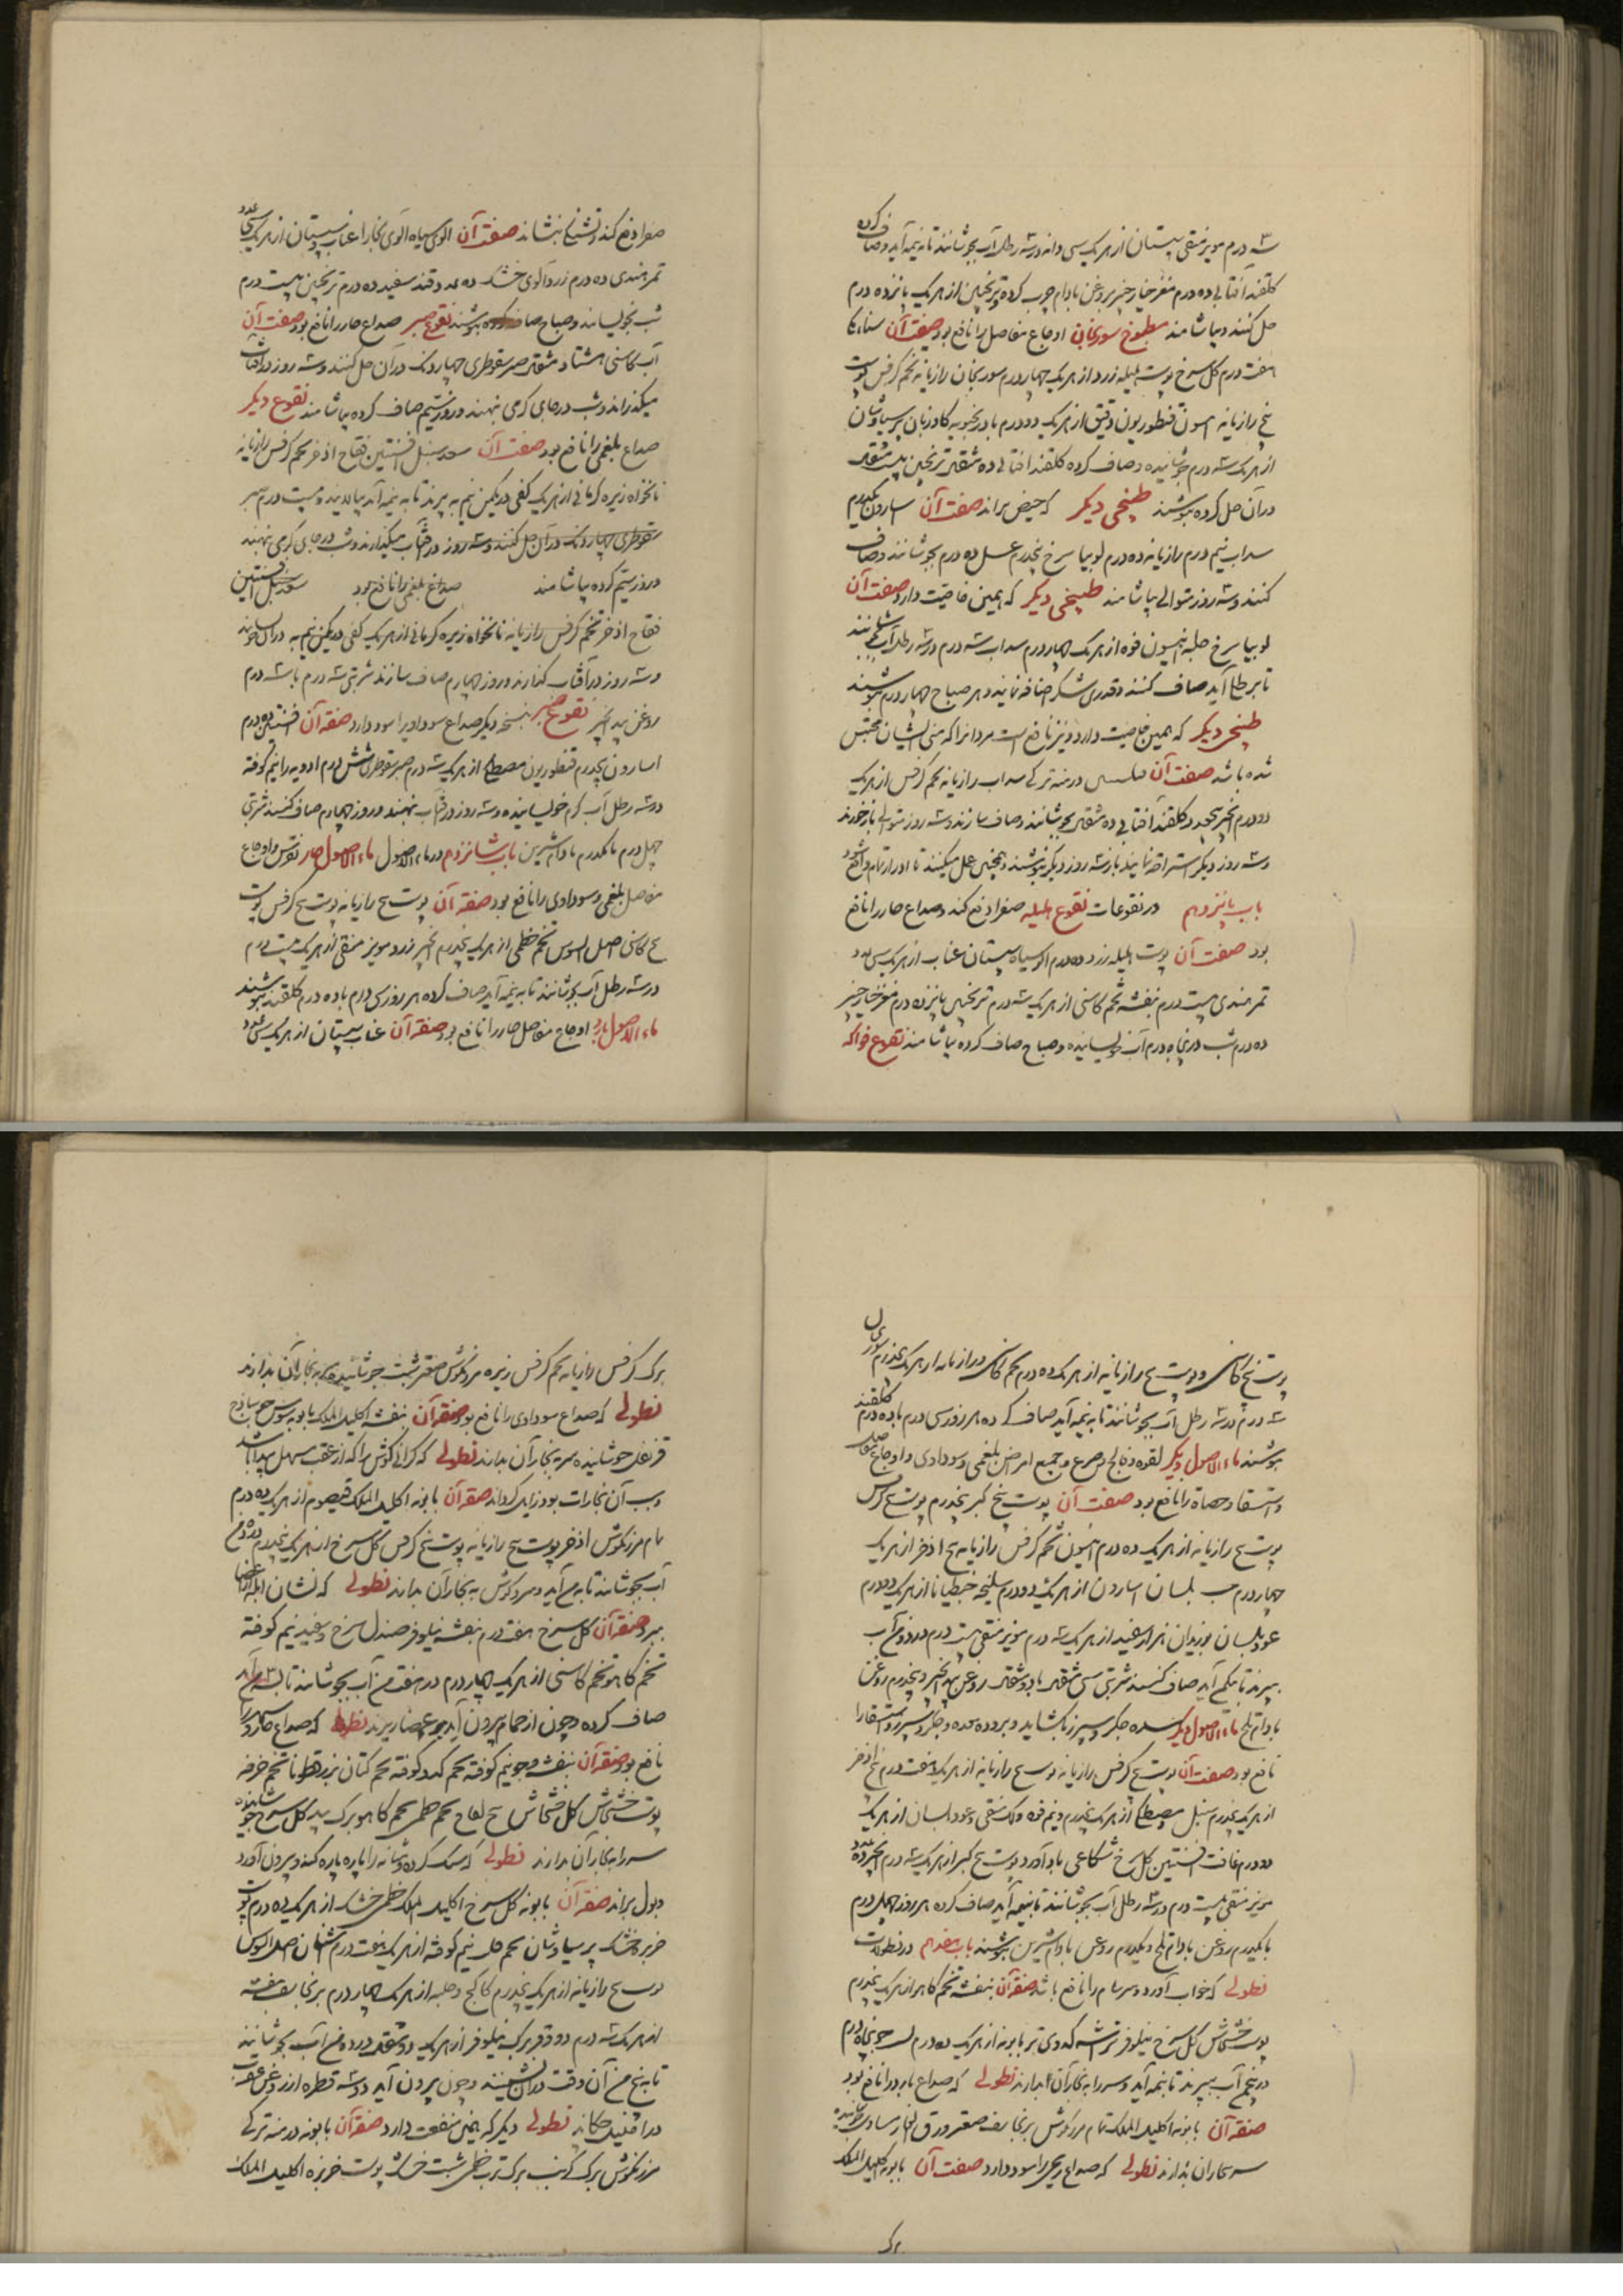 سه درم مویز منقی سپستان از هر یک سی دانه در سه رطل آب بجوشانند تا بنیمه آید و صاف کرده
گلقند آفتابی ده درم مغز خیار چنبر بروغن بادام چرب کرده و ترنجبین از هر یک پانزده درم
حل کنند و بیاشامند مطبوخ سورنجان اوجاع مفاصل را نافع بود صفت آن سناء مکی
هفت درم گل سرخ پوست هلیله زرد از هر یک چهار درم سورنجان رازیانه تخم کرفس پوست
بیخ رازیانه انیسون قنطوریون دقیق از هر یک دو درم بادرنجبویه گاوزبان پرسیاوشان
از هر یک سه درم جوشانیده و صاف کرده گلقند آفتابی ده مثقال ترنجبین بیست مثقال
در آن حل کرده بنوشند طبیخی دیگر که حیض براند صفت آن اسارون یکدرم
سداب نیم درم رازیانه ده درم لوبیا سرخ پنجدرم عسل ده درم بجوشانند و صاف
کنند و سه روز متوالی بیاشامند طبیخی دیگر که همین خاصیت دارد صفت آن
لوبیا سرخ حلبه انیسون فوه از هر یک چهار درم سداب سه درم در سه رطل آب بجوشانند
تا برطلی آید صاف کنند و قدری شکر اضافه نمایند و هر صباح چهار درم بنوشند
طبیخی دیگر که همین خاصیت دارد و نیز نافع است مردانرا که منی ایشان محتبس
شده باشد صفت آن درمنه ترکی سداب رازیانه تخم کرفس از هر یک
دو درم انجیر پنجعدد گلقند آفتابی ده مثقال بجوشانند و صاف سازند و سه روز متوالی باز خورند
و سه روز دیگر استراحة نمایند باز سه روز دیگر بنوشند و همچنین عمل میکنند تا ادرار تمام واقع شود
باب پانزدهم در نقوعات نقوع هلیله صفرا دفع کند و صداع حار را نافع
بود صفت آن پوست هلیله زرد ده درم آلو سیاه سپستان عناب از هر یک سی عدد
تمر هندی بیست درم بنفشه تخم کاسنی از هر یک سه درم ترنجبین پانزده درم مغز خیار چنبر
ده درم شب در پنجاه درم آب خولیسانیده و صباح صاف کرده بیاشامند نقوع فواکه
صفرا دفع کند و تشنگی بنشاند صفت آن آلوی سیاه آلوی بخارا عناب سپستان از هر یک سی عدد
تمر هندی ده درم زردآلوی خشک ده عدد قند سفید ده درم ترنجبین بیست درم
شب بخولیسانند و صباح صاف کرده بنوشند نقوع صبر صداع حار را نافع بود صفت آن
آب کاسنی هشتاد مثقال صبر سقوطری چهار دانک در آن حل کنند و سه روز در آفتاب
میگذراند و شب در جای گرمی نهند و روز سیم صاف کرده بیاشامند نقوع دیگر
صداع بلغمی را نافع بود صفت آن سعد سنبل افسنتین فقاح اذخر تخم کرفس رازیانه
نانخواه زیره کرمانی از هر یک کفی در یکمن نیم به پزند تا به نیمه آید بپالایند و بیست درم صبر
سقوطری چهار دانک در آن حل کنند و سه روز در آفتاب میگذارند و شب در جای گرمی نهند
و روز سیم کرده بیاشامند صداع بلغمی را نافع بود سعد سنبل افسنتین
فقاح اذخر تخم کرفس رازیانه نانخواه زیره کرمانی از هر یک کفی در یکمن نیم به در آن بخولیسانند
و سه روز در آفتاب گذارند و روز چهارم صاف سازند شربتی سه درم با سه درم
روغن بید انجیر نقوع صبر بنسخه دیگر صداع سوداویرا سود دارد صفة آن افسنتین ده درم
اسارون پنجدرم قنطوریون مصطکی از هر یک سه درم صبر سقوطری شش درم ادویه را نیم کوفته
در سه رطل آب گرم خولیسانیده و سه روز در آفتاب نهند و روز چهارم صاف کنند شربتی
چهل درم با یکدرم بادام شیرین باب شانزدهم در ماء الاصول ماء الاصول حار نقرس و اوجاع
مفاصل بلغمی و سوداوی را نافع بود صفة آن پوست بیخ رازیانه پوست بیخ کرفس پوست
بیخ کاسنی اصل السوس تخم خطمی از هر یک پنجدرم انجیر زرد مویز منقی از هر یک بیست درم
در سه رطل آب بجوشانند تا به نیمه آید صاف کرده هر روز سی درم با ده درم گلقند بنوشند
ماء الاصول بارد اوجاع مفاصل حار را نافع بود صفة آن عناب سپستان از هر یک سی عدد
پوست بیخ کاسنی و پوست بیخ رازیانه از هر یک ده درم تخم کاسنی و رازیانه از هر یک پنجدرم
سه درم در سه رطل آب بجوشانند تا به نیمه آید صاف کرده هر روز سی درم با ده درم گلقند
بنوشند ماء الاصول دیگر لقوه و فالج و صرع و جمیع امراض بلغمی و سوداوی و اوجاع مفاصل
و استسقا و حصاة را نافع بود صفت آن پوست بیخ کبر پنجدرم پوست بیخ کرفس
پوست بیخ رازیانه از هر یک ده درم انیسون تخم کرفس رازیانه بیخ اذخر از هر یک
چهار درم حب بلسان اسارون از هر یک دو درم سلیخه جنطیانا از هر یک دو درم
عود بلسان بوزیدان از هر یک سه درم مویز منقی بیست درم در دو من آب
بپزند تا بیکمن آید صاف کنند شربتی سی مثقال با دو مثقال روغن بید انجیر و پنجدرم روغن
بادام تلخ ماء الاصول دیگر سده جگر و سپرز بکشاید و برودة معده و جگر و سپرز و استسقا را
نافع بود صفت آن پوست بیخ کرفس رازیانه پوست بیخ رازیانه از هر یک هفت درم بیخ اذخر
از هر یک پنجدرم سنبل مصطکی از هر یک پنجدرم و نیم فوه و لک منقی و عود بلسان از هر یک
دو درم غافث افسنتین گل سرخ شکاعی بادآورد پوست بیخ کبر از هر یک سه درم انجیر ده عدد
مویز منقی بیست درم در سه رطل آب بجوشانند تا بنیمه آید صاف کرده هر روز چهل درم
با یکدرم روغن بادام تلخ و یکدرم روغن بادام شیرین بنوشند باب هفدهم در نطولات
نطولی که خواب آورد و سرسام را نافع باشد صفة آن بنفشه تخم کاهو از هر یک پنجدرم
پوست خشخاش گل سرخ نیلوفر تراشه کدوی تر بابونه از هر یک ده درم جو پنجاه درم
در پنج من آب بپزند تا بنیمه آید و سر را به بخار آن بدارند نطولی که صداع بارد را نافع بود
صفة آن بابونه اکلیل الملک نمام مرزنکوش برنجاسف صعتر ورق الغار مساوی جوشانیده
سر به بخار آن بدارند نطولی که صداع ریحی را سود دارد صفت آن بابونه اکلیل الملک
برک
برک کرفس رازیانه تخم کرفس زیره مرزنکوش صعتر شبت جوشانیده سر به بخار آن بدارند
نطولی که صداع سوداوی را نافع بود صفة آن بنفشه اکلیل الملک بابونه سوس جو ساذج
قرنفل جوشانیده سر به بخار آن بدارند نطولی که گرانی گوش را که از عقب سهل پیدا باشد
و سبب آن بخارات بود زایل گرداند صفة آن بابونه اکلیل الملک قیصوم از هر یک ده درم
نمام مرزنکوش اذخر پوست بیخ رازیانه پوست بیخ کرفس گل سرخ از هر یک پنجدرم در ده من
آب بجوشانند تا به من آید و سر و گوش به بخار آن بدارند نطولی که نشان ابله از اعضا
ببرد صفة آن گل سرخ هفت درم بنفشه نیلوفر صندل سرخ و سفید نیم کوفته
تخم کاهو تخم کاسنی از هر یک چهار درم در هفت من آب بجوشانند تا به سه من آید
صاف کرده و چون از حمام بیرون آید بر اعضا ریزند نطولی که صداع حار و سهر را
نافع بود صفة آن بنفشه و جو نیم کوفته تخم کدو کوفته تخم کتان بزر قطونا تخم خرفه
پوست خشخاش گل خشخاش بیخ لفاح تخم خطمی تخم کاهو برک بید گل سرخ جوشانیده
سر را به بخار آن بدارند نطولی که سنگ گرده و مثانه را پاره پاره کند و بیرون آورد
و بول براند صفة آن بابونه گل سرخ اکلیل الملک خطمی خشک از هر یک ده درم پوست
خربزه خشک پرسیاوشان تخم نیم کوفته از هر یک هفت درم اصل السوس
پوست بیخ رازیانه از هر یک پنجدرم کاکنج و حلبه از هر یک چهار درم برنجاسف بنفشه
از هر یک سه درم دوقو برک نیلوفر از هر یک دو مثقال در ده من آب بجوشانند
تا به پنج من آن وقت در آن نشینند و چون بیرون آید دو سه قطره از روغن عقرب
در احلیل چکانند نطولی دیگر که همین منفعت دارد صفة آن بابونه درمنه ترکی
مرزنکوش برک کرنب برک ترب خطمی شبت خشک پوست خربزه اکلیل الملک